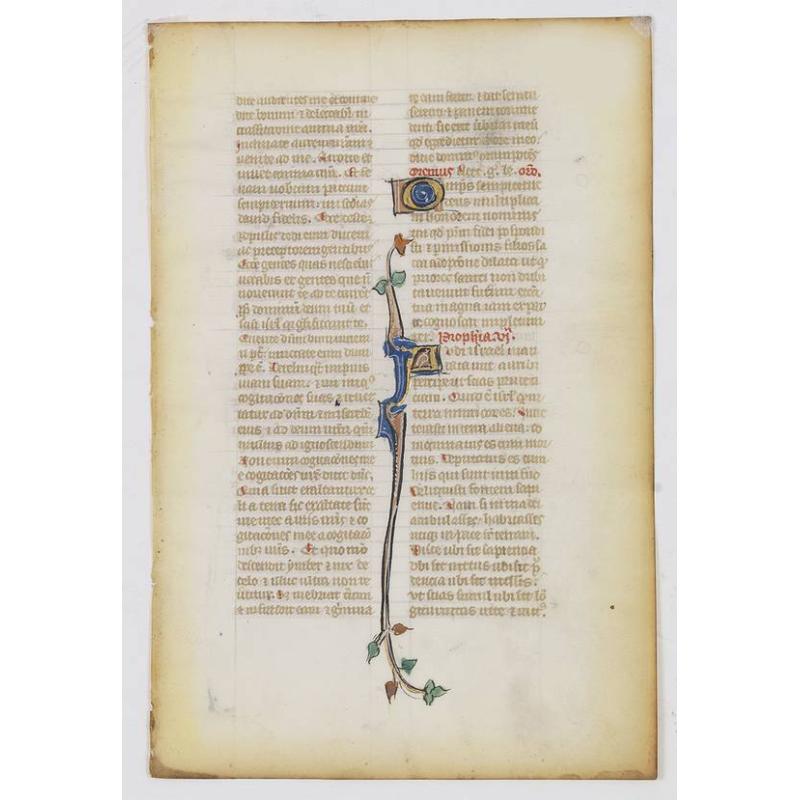 dite audientes me et come
dite bonum & delectabit in
crassitudine anima vra.
Inclinate aurem vram &
venite ad me. Audite et
vivet anima vra. Et fe
riam vobiscum pactum
sempiternum. mias
david fideles. Ecce teste
populis dedi eum ducem
ac preceptorem gentibus
Ecce gentes quas nesciebas
vocabis et gentes que n
noverunt te ad te current
dominum deum tuum et
israel qr glificavit te.
Querite dnm dum inveni
ri pt. invocate eum dum
ppe e. Derelinqt impius
viam suam & vir iniqs
cogitaciones suas & rever
tatur ad dnm & miserebit
eius & ad deum nrm qm
multus ad ignoscendum
Non enim cogitaciones me
e cogitaciones vre dicit dns.
Quia sicut exaltantur ce
li a terra sic exaltate sunt
vie mee a viis vris & co
gitaciones mee a cogitacio
nibz vris. Et quomo
descendit ymber & nix de
celo & illuc ultra non re
vertitur. Et inebriat terram
& infundit eam & germina
re eam facit. & dat semen
serenti & panem comede
ti. sic erit verbum meum
qd egredietur de ore meo
dicit dominus omnipotens
Oremus. flect. g. le. oro.
Omps sempiterne
deus multiplica
in honorem nominis
tui qd patrum fidei spopondi
sti & promissionis filios sa
cra adoptione dilata ut qd
priores sancti non dubi
taverunt futurum eccia
tua magna iam ex par
te cognoscat impletum
per. Prophia. vj.
Audi israel man
data vite auribz
percipe ut scias pruden
tiam. Quid e isrl qm
terra inimicor es. Inve
terasti in terra aliena. co
inquinatus es cum mor
tuis. Deputatus es cum
hiis qui sunt in inferno
Dereliquisti fontem sapi
encie. Nam si in via dei
ambulasses. habitasses
utiqz in pace sempiternam.
Disce ubi sit sapiencia
ubi sit virtus ubi sit pru
dencia ubi sit intellectus.
Ut scias simul ubi sit lon
giturnitas vite & vict9.